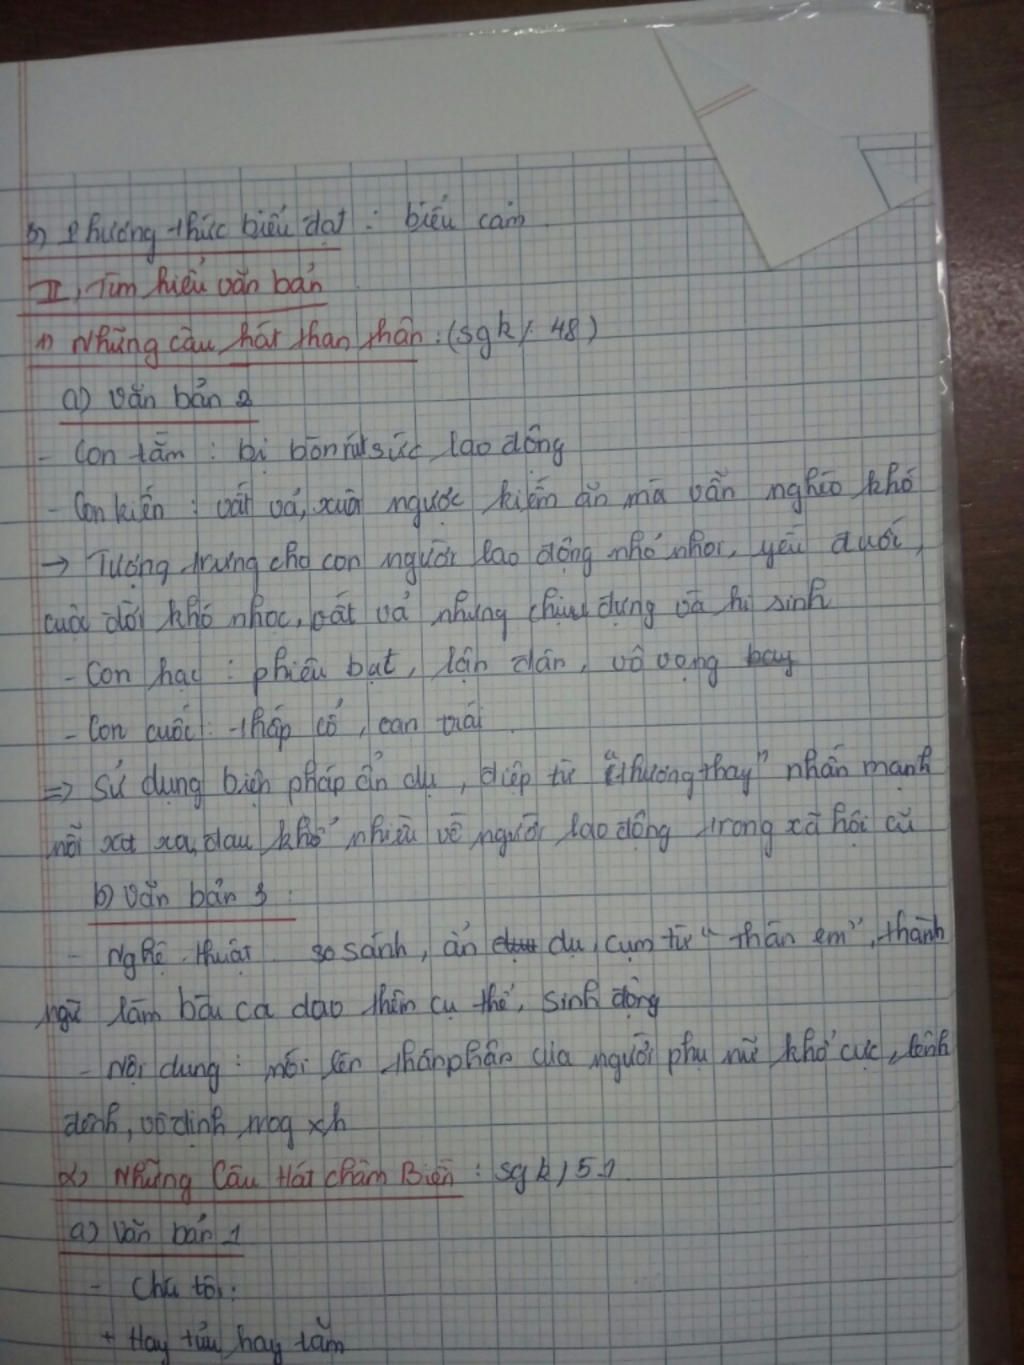 b) Phương thức biểu đạt : biểu cảm
II, Tìm hiểu văn bản
1) Những câu hát than thân : (sgk / 48)
a) Văn bản 2
- Con tằm : bị bòn rút sức lao động
- Con kiến : vất vả, xuôi ngược kiếm ăn mà vẫn nghèo khó
→ Tượng trưng cho con người lao động nhỏ nhoi, yếu đuối,
cuộc đời khó nhọc, vất vả nhưng chịu đựng và hi sinh
- Con hạc : phiêu bạt, lận đận, vô vọng bay
- Con cuốc : thấp cổ, oan trái
=> Sử dụng biện pháp ẩn dụ, điệp từ "thương thay" nhấn mạnh
nỗi xót xa, đau khổ nhiều về người lao động trong xã hội cũ
b) Văn bản 3 :
- Nghệ thuật so sánh, ẩn dụ, cụm từ "thân em", thành
ngữ làm bài ca dao thêm cụ thể, sinh động
- Nội dung : nói lên thân phận của người phụ nữ khổ cực, lênh
đênh, vô định trog xh
2) Những Câu Hát Châm Biếm : sgk / 51
a) Văn bản 1
- Chú tôi :
+ Hay tửu hay tăm